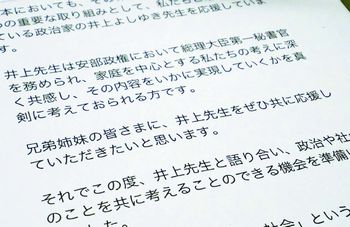 本においても、その
つの重要な取り組みとして、私たち
ている政治家の井上よしゆき先生を応援していま
す。
井上先生は安部政権において総理大臣第一秘書官
を務められ、家庭を中心とする私たちの考えに深
く共感し、その内容をいかに実現していくかを真
剣に考えておられる方です。
兄弟姉妹の皆さまに、井上先生をぜひ共に応援し
ていただきたいと思います。
それでこの度、井上先生と語り合い、政治や社
のことを共に考えることのできる機会を準備
した。
社会」という